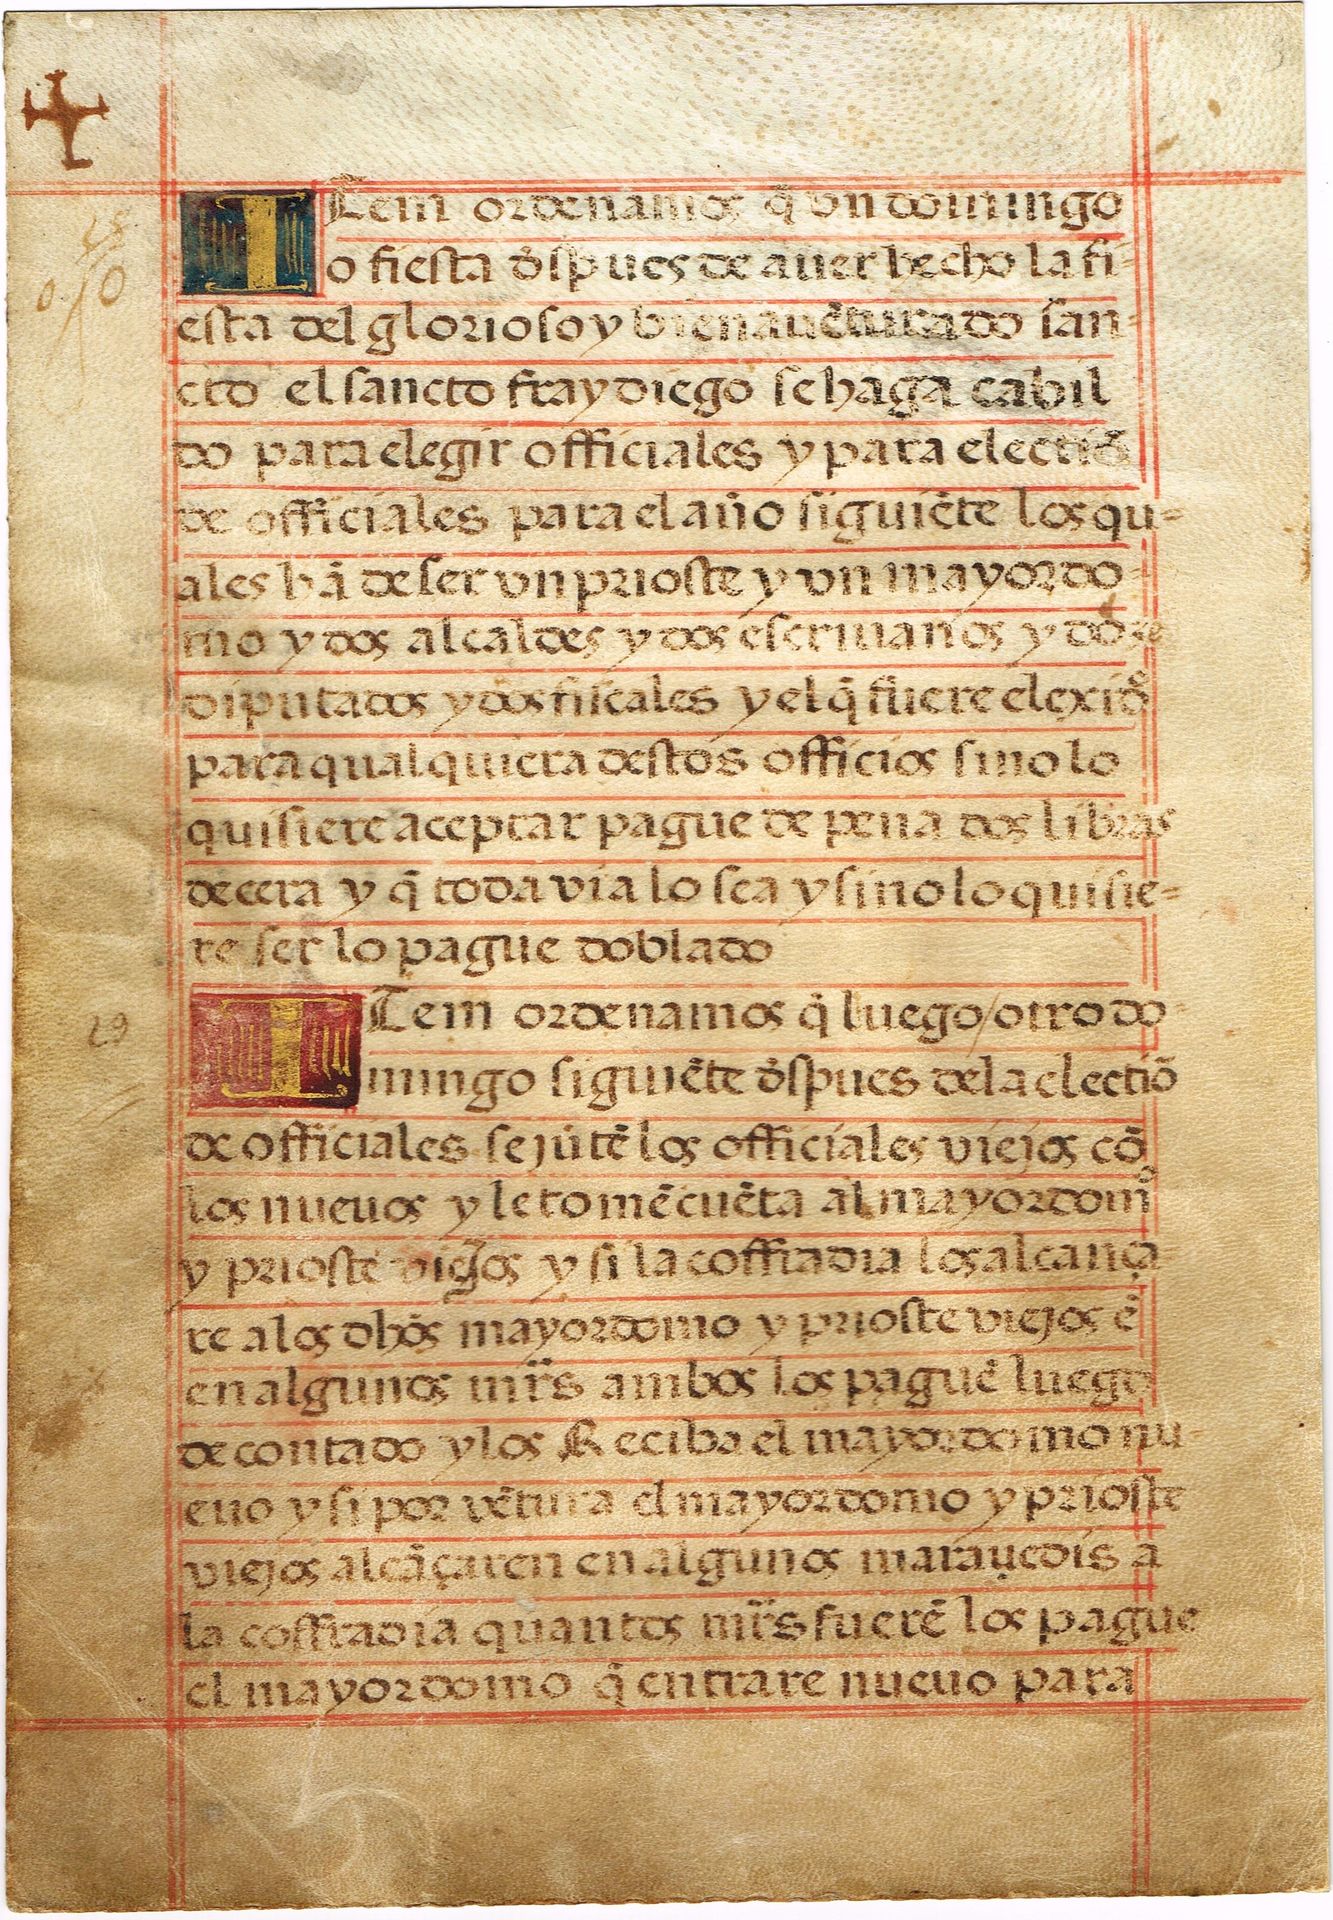 Item ordenamos q̃ vn domingo
o fiesta d̃spues de auer hecho la fi-
esta del glorioso y bienauẽturado san-
cto el sancto fray diego se haga cabil
do para elegir officiales y para electiõ
de officiales para el año siguiẽte los qu-
ales hã de ser vn prioste y vn mayordo-
mo y dos alcaldes y dos escriuanos y doze
diputados y dos fiscales y el q̃ fuere elexido
para qualquiera destos officios si no lo
quisiere aceptar pague de pena dos libras
de cera y q̃ toda via lo sea y si no lo quisie-
re ser lo pague doblado
19
Item ordenamos q̃ luego / otro do-
mingo siguiẽte d̃spues de la electiõ
de officiales se jũtẽ los officiales viejos cõ
los nueuos y le tomẽ cuẽta al mayordomo
y prioste viejos y si la coffradia los alcança
re a los dhõs mayordomo y prioste viejos ẽ
en algunos mr̃s ambos los paguẽ luego
de contado y los Reciba el mayordomo nu-
euo y si por vẽtura el mayordomo y prioste
viejos alcãçaren en algunos marauedis a
la coffradia quantos mr̃s fuerẽ los pague
el mayordomo q̃ entrare nueuo para